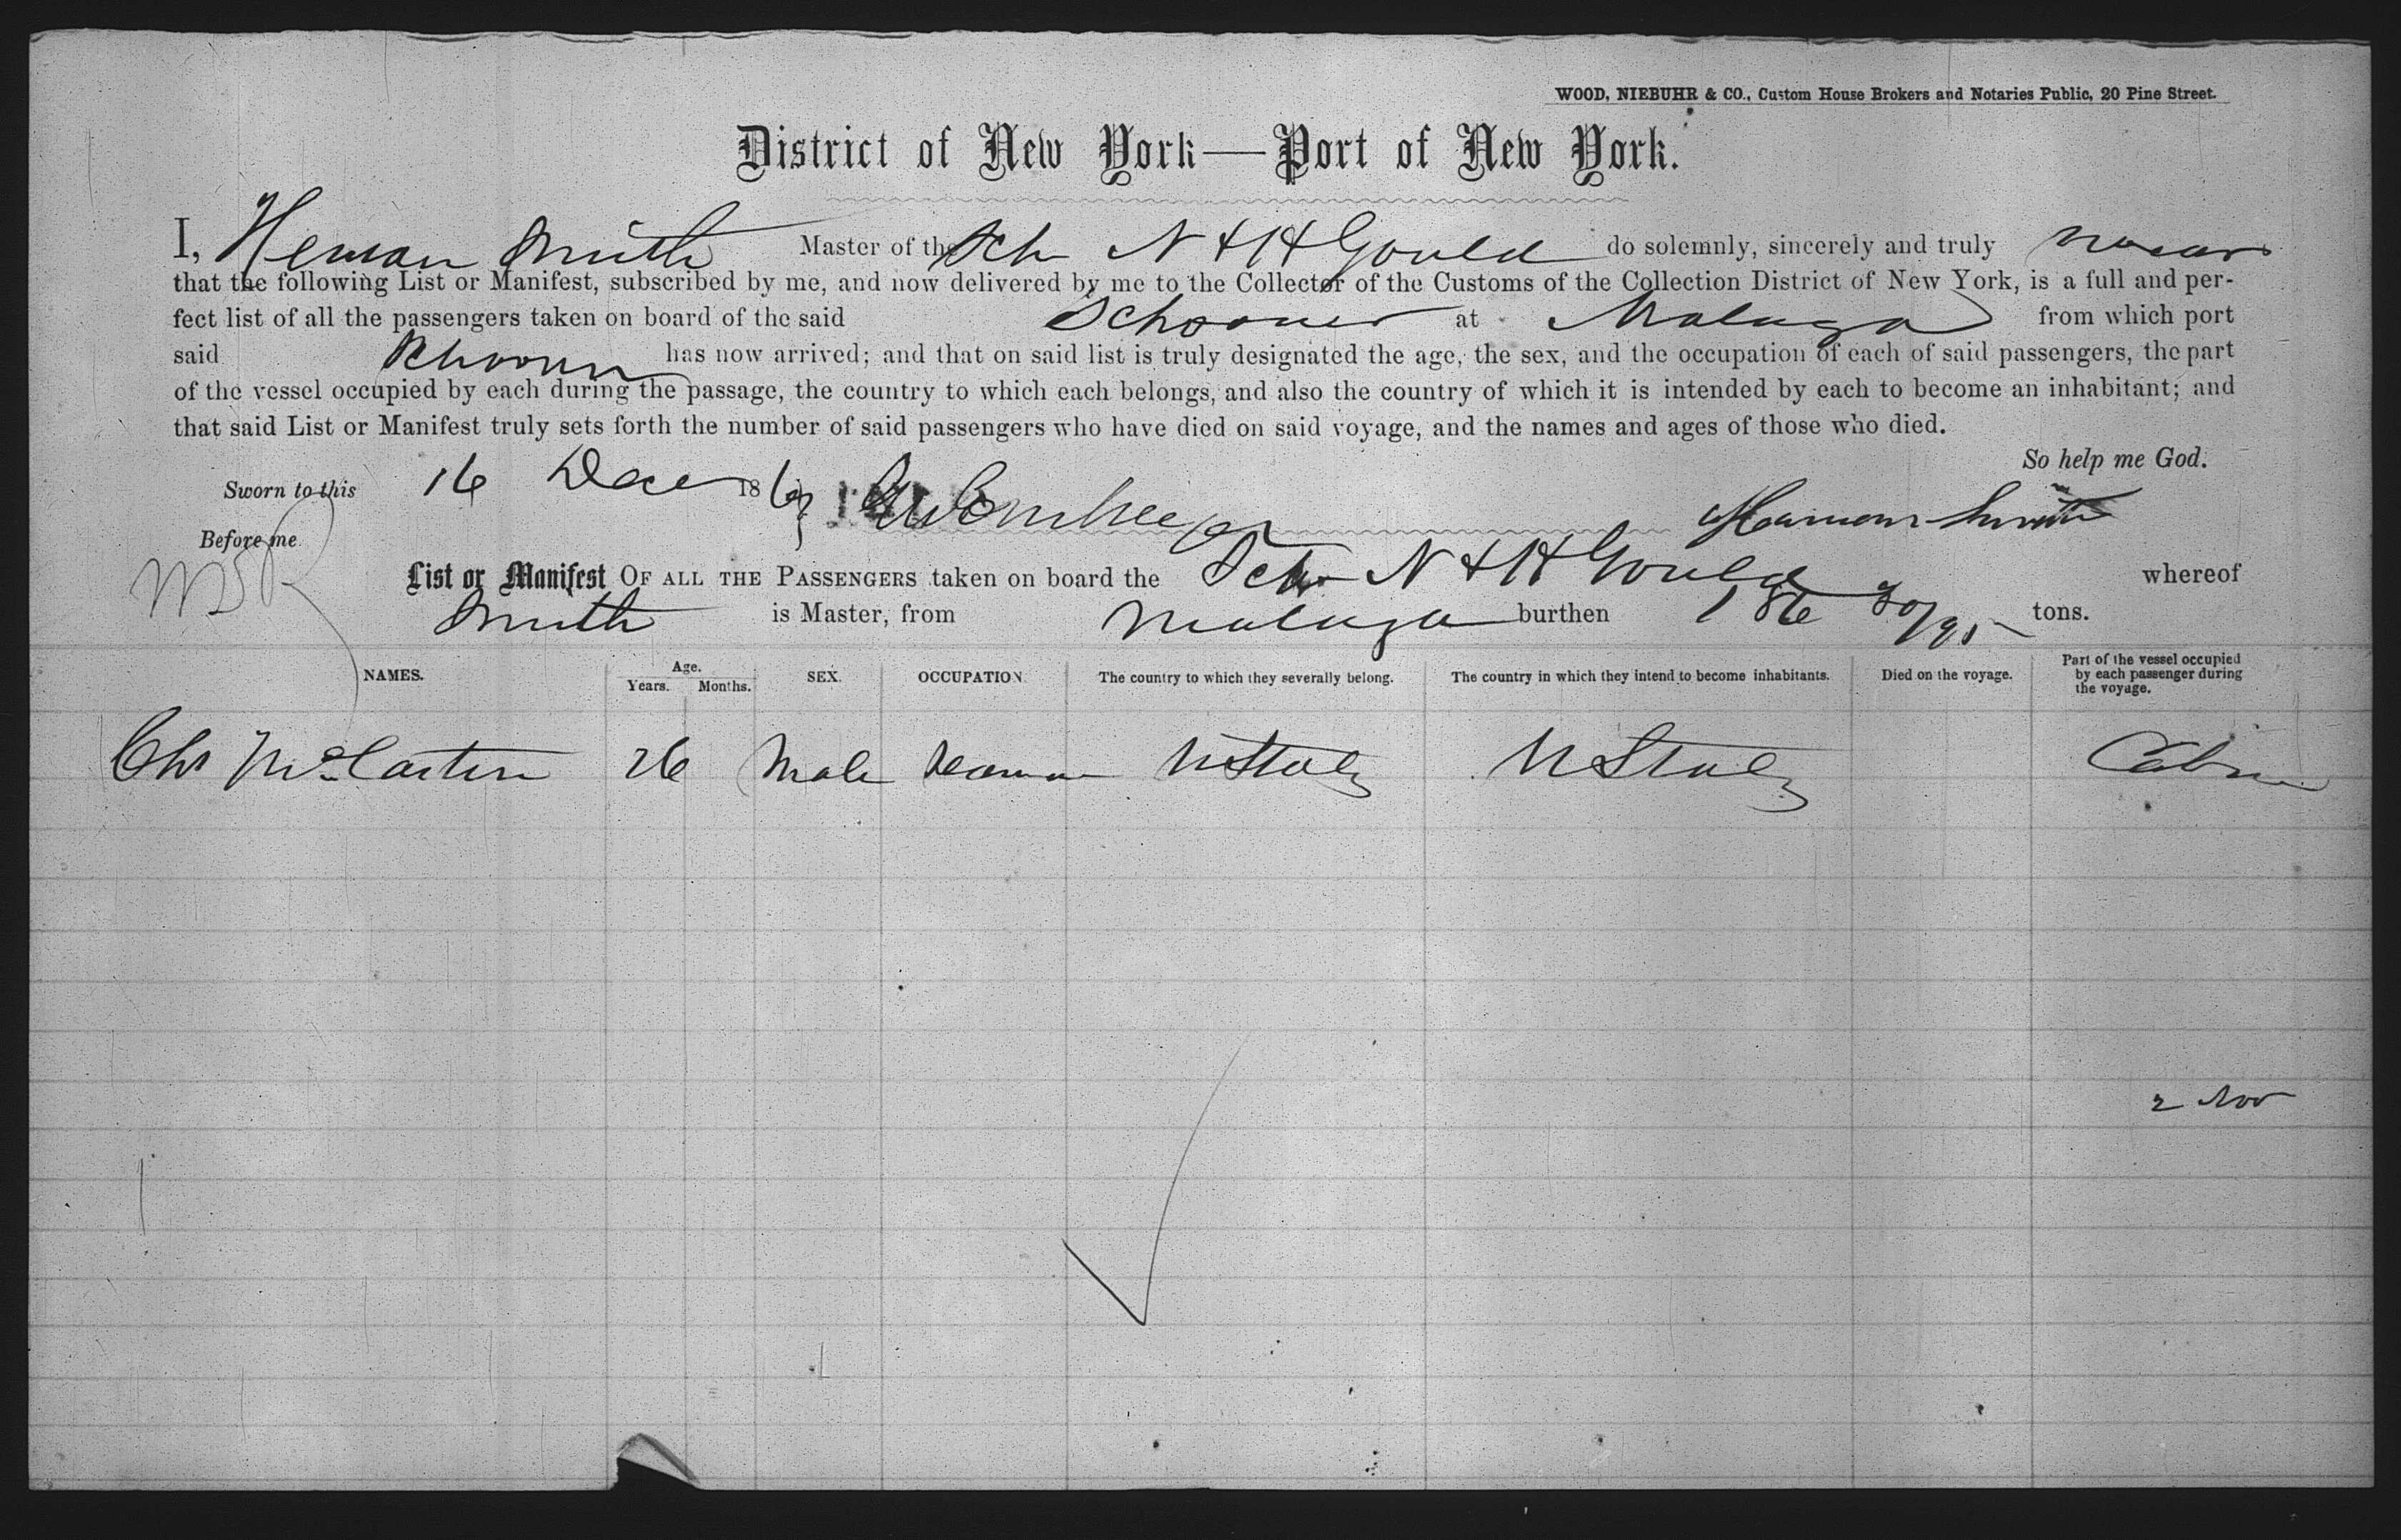 WOOD, NIEBUHR & CO., Custom House Brokers and Notaries Public, 20 Pine Street.
District of New York—Port of New York.
I, Heman Smith Master of the Sch N & H Gould do solemnly, sincerely and truly swear
that the following List or Manifest, subscribed by me, and now delivered by me to the Collector of the Customs of the Collection District of New York, is a full and per-
fect list of all the passengers taken on board of the said Schooner at Malaga from which port
said Schooner has now arrived; and that on said list is truly designated the age, the sex, and the occupation of each of said passengers, the part
of the vessel occupied by each during the passage, the country to which each belongs, and also the country of which it is intended by each to become an inhabitant; and
that said List or Manifest truly sets forth the number of said passengers who have died on said voyage, and the names and ages of those who died.
So help me God.
Sworn to this 16 Dec 1867 Heman Smith
Before me
List or Manifest OF ALL THE PASSENGERS taken on board the Schr N & H Gould whereof
Smith is Master, from Malaga burthen 186 30/95 tons.
NAMES. Age. Years. Months. SEX. OCCUPATION. The country to which they severally belong. The country in which they intend to become inhabitants. Died on the voyage. Part of the vessel occupied by each passenger during the voyage.
Chs McCarten 26 Male Seaman U States U States Cabin
2 Nov